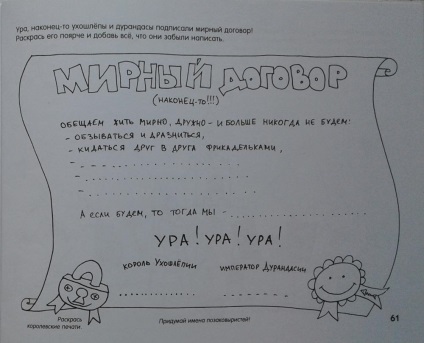 Ура, наконец-то ухошлёпы и дурандасы подписали мирный договор!
Раскрась его поярче и добавь всё, что они забыли написать.
МИРНЫЙ ДОГОВОР
(НАКОНЕЦ-ТО!!!)
ОБЕЩАЕМ ЖИТЬ МИРНО, ДРУЖНО - И БОЛЬШЕ НИКОГДА НЕ БУДЕМ:
- ОБЗЫВАТЬСЯ И ДРАЗНИТЬСЯ,
- КИДАТЬСЯ ДРУГ В ДРУГА ФРИКАДЕЛЬКАМИ,
А ЕСЛИ БУДЕМ, ТО ТОГДА МЫ -
УРА! УРА! УРА!
КОРОЛЬ УХОШЛЁПИИ ИМПЕРАТОР ДУРАНДАСИИ
Раскрась
королевские печати
Придумай имена позаковыристей!
61